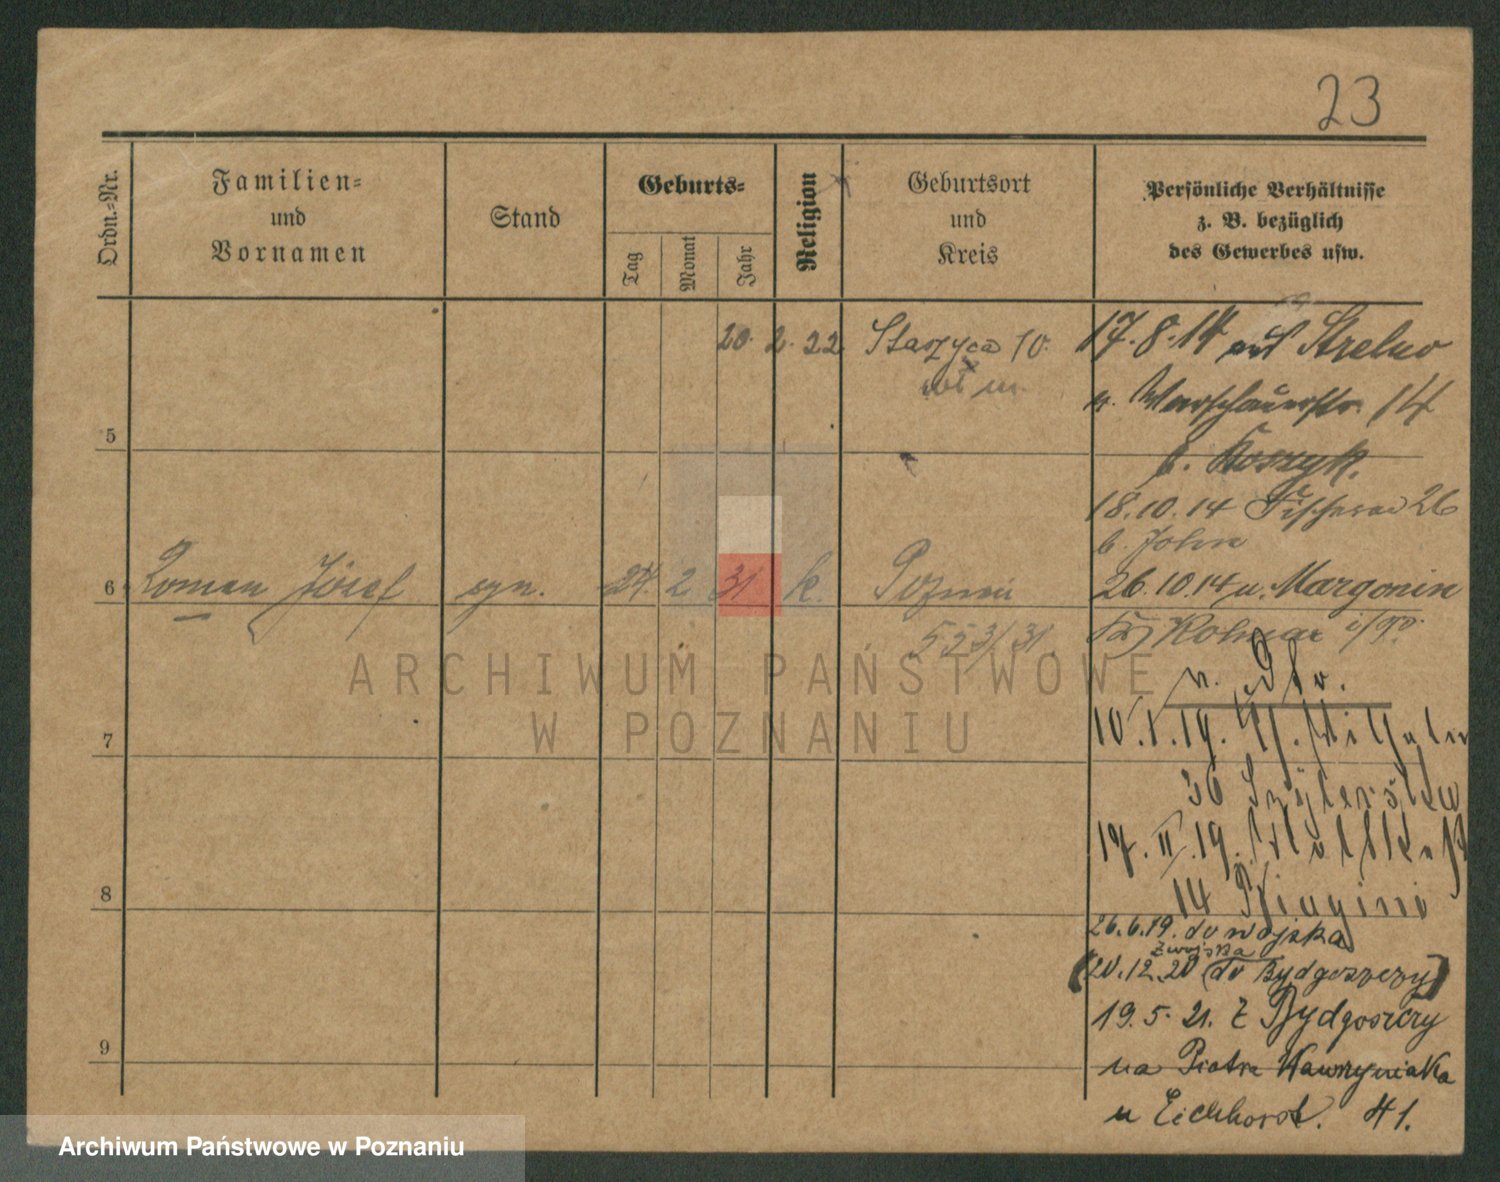 23
Ordn.-Nr.
Familien-
und
Vornamen
Stand
Geburts-
Tag
Monat
Jahr
Religion
Geburtsort
und
Kreis
Persönliche Verhältnisse
z. B. bezüglich
des Gewerbes usw.
20. 2. 22 Staszyca 10.
17.8.14 auf Strelno
n. Warschauerstr. 14
5
b. Koszyk.
18.10.14 Fischerei 26
b. John
6 Roman Józef syn. 24. 2 31 k. Poznań
553/31.
26.10.14 n. Margonin
Kolmar i/P.
v. dto.
7
10.1.19.
36
17.II.19.
8
14
26.6.19. do wojska
z wojska
(20.12.20 do Bydgoszczy)
19.5.21. z Bydgoszczy
9
na Piotra Wawrzyniaka
u Eichhorst. 41.
ARCHIWUM PAŃSTWOWE
W POZNANIU
Archiwum Państwowe w Poznaniu